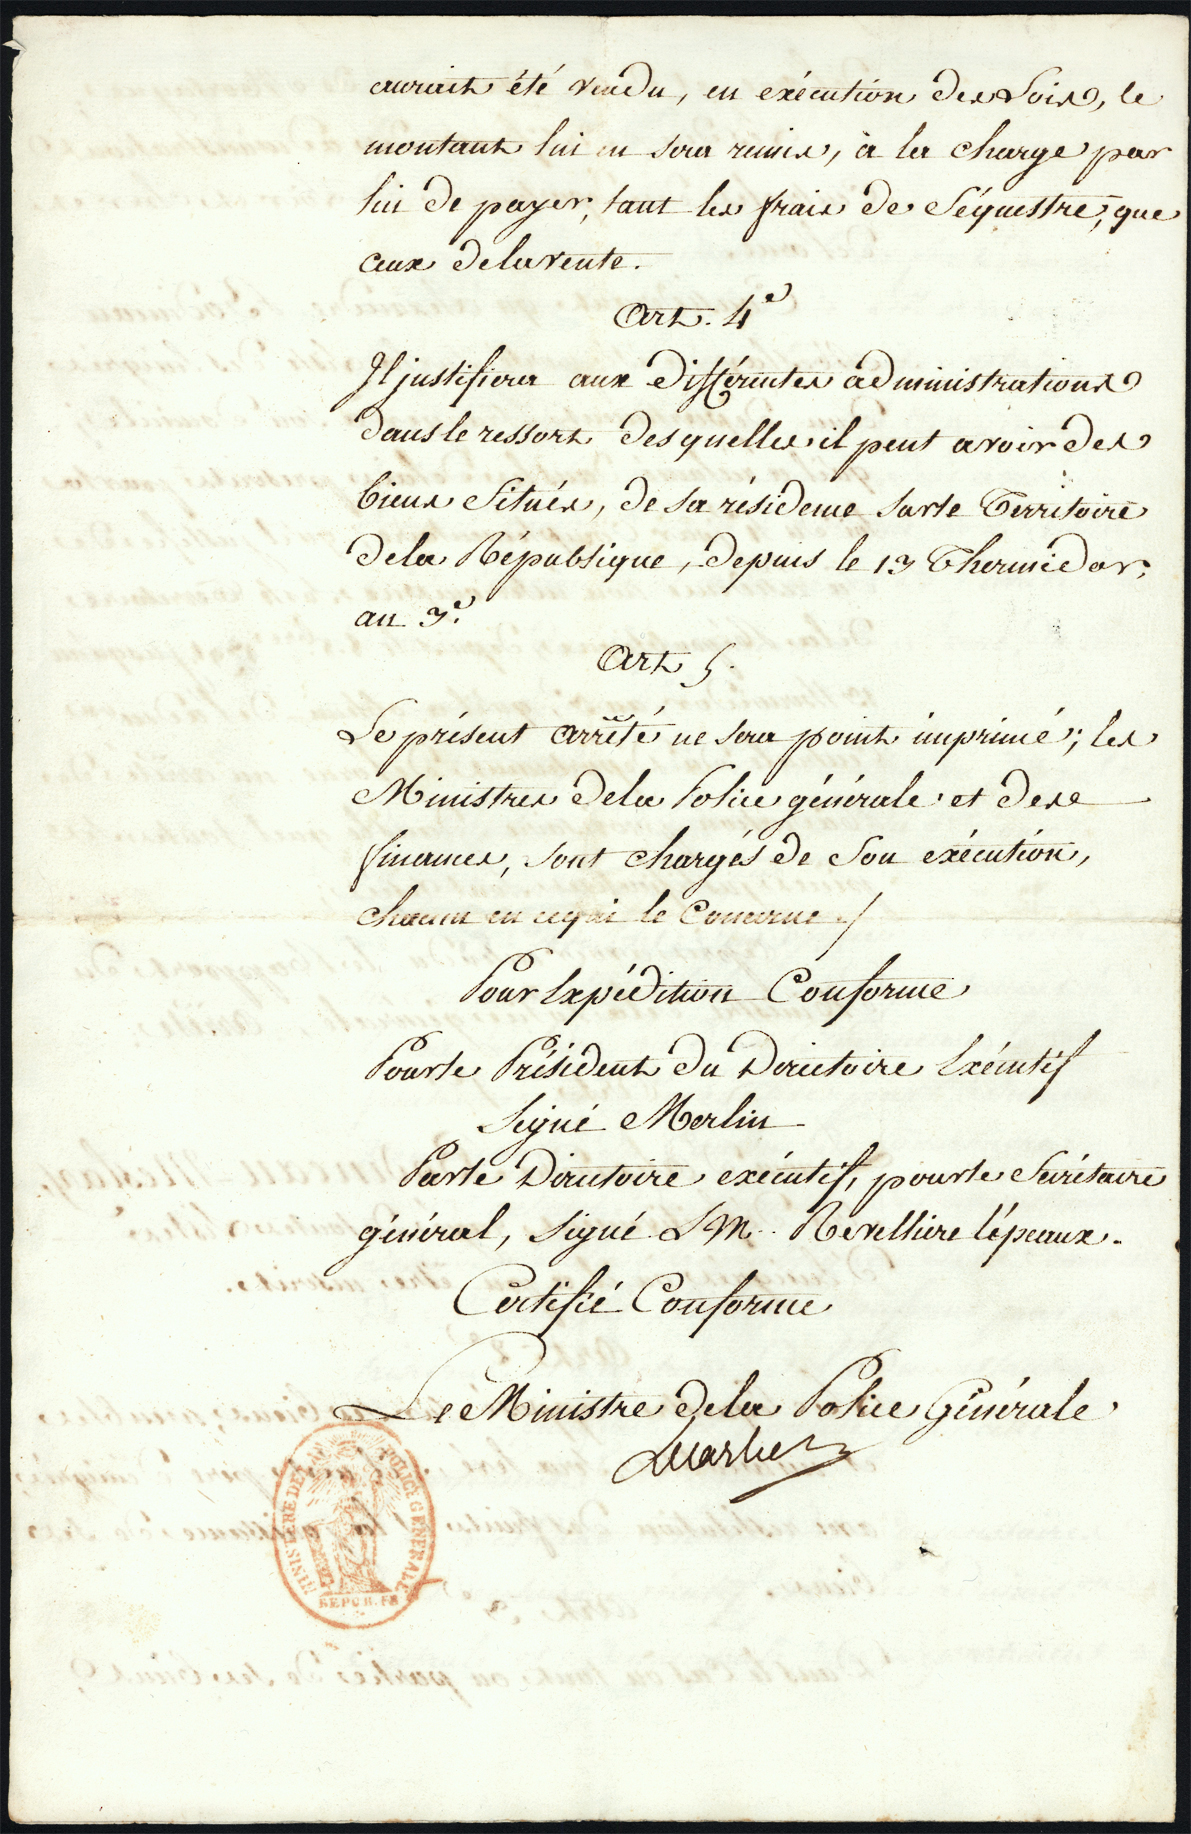 aurait été vendu, en exécution des Lois, le
montant lui en sera remis, à la charge par
lui de payer, tant les frais de Séquestre, que
ceux de la vente.
Art. 4e
Il justifiera aux différentes administrations
dans le ressort desquelles il peut avoir des
biens Situés, de sa résidence sur le Territoire
de la République, depuis le 13 Thermidor,
an 3e.
Art 5.
Le présent arrêté ne sera point imprimé; les
Ministres de la Police générale et des
finances, sont chargés de Son exécution,
chacun en ce qui le Concerne ./
Pour Expédition Conforme
Pour le Président du Directoire Exécutif
Signé Merlin
Par le Directoire exécutif, pour le Secrétaire
général, Signé L M. Revelliere lépeaux.
Certifié Conforme
Le Ministre de la Police Générale
MINISTERE DE LA POLICE GENERALE
REPUB. FR